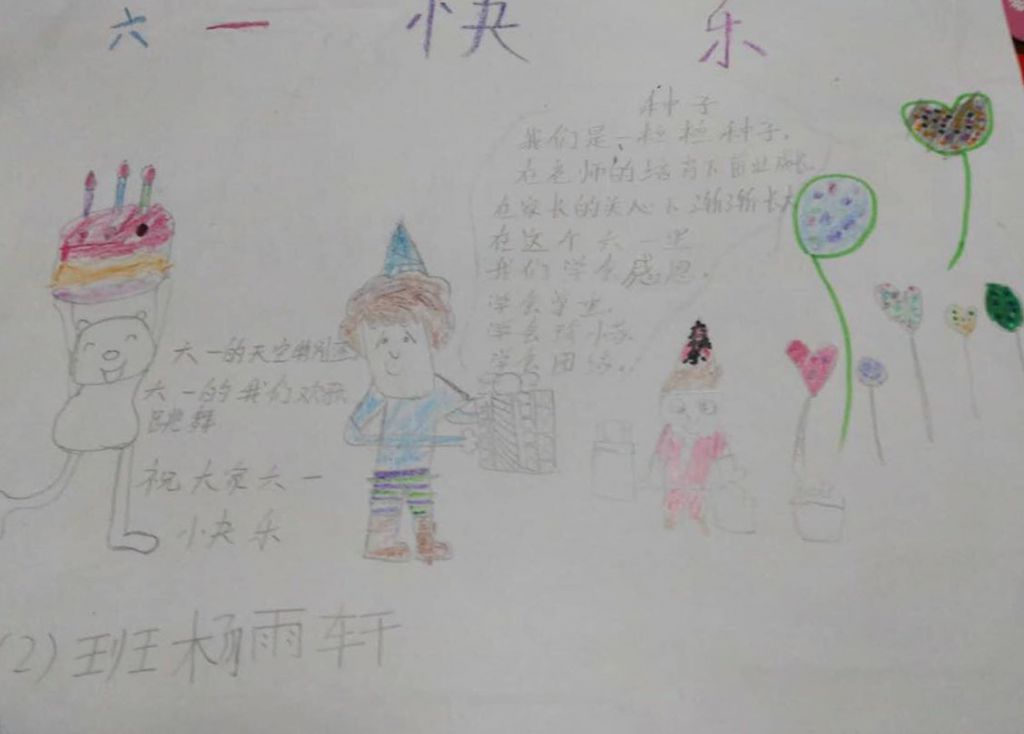 六一快乐
种子
我们是一粒粒种子,
在老师的培育下茁壮成长
在家长的关心下渐渐长大
在这个六一里
我们学会感恩,
学会学
学会
学会团结..
六一的天空特别蓝
六一的我们欢歌
跳舞
祝大家六一
快乐
(2)班杨雨轩